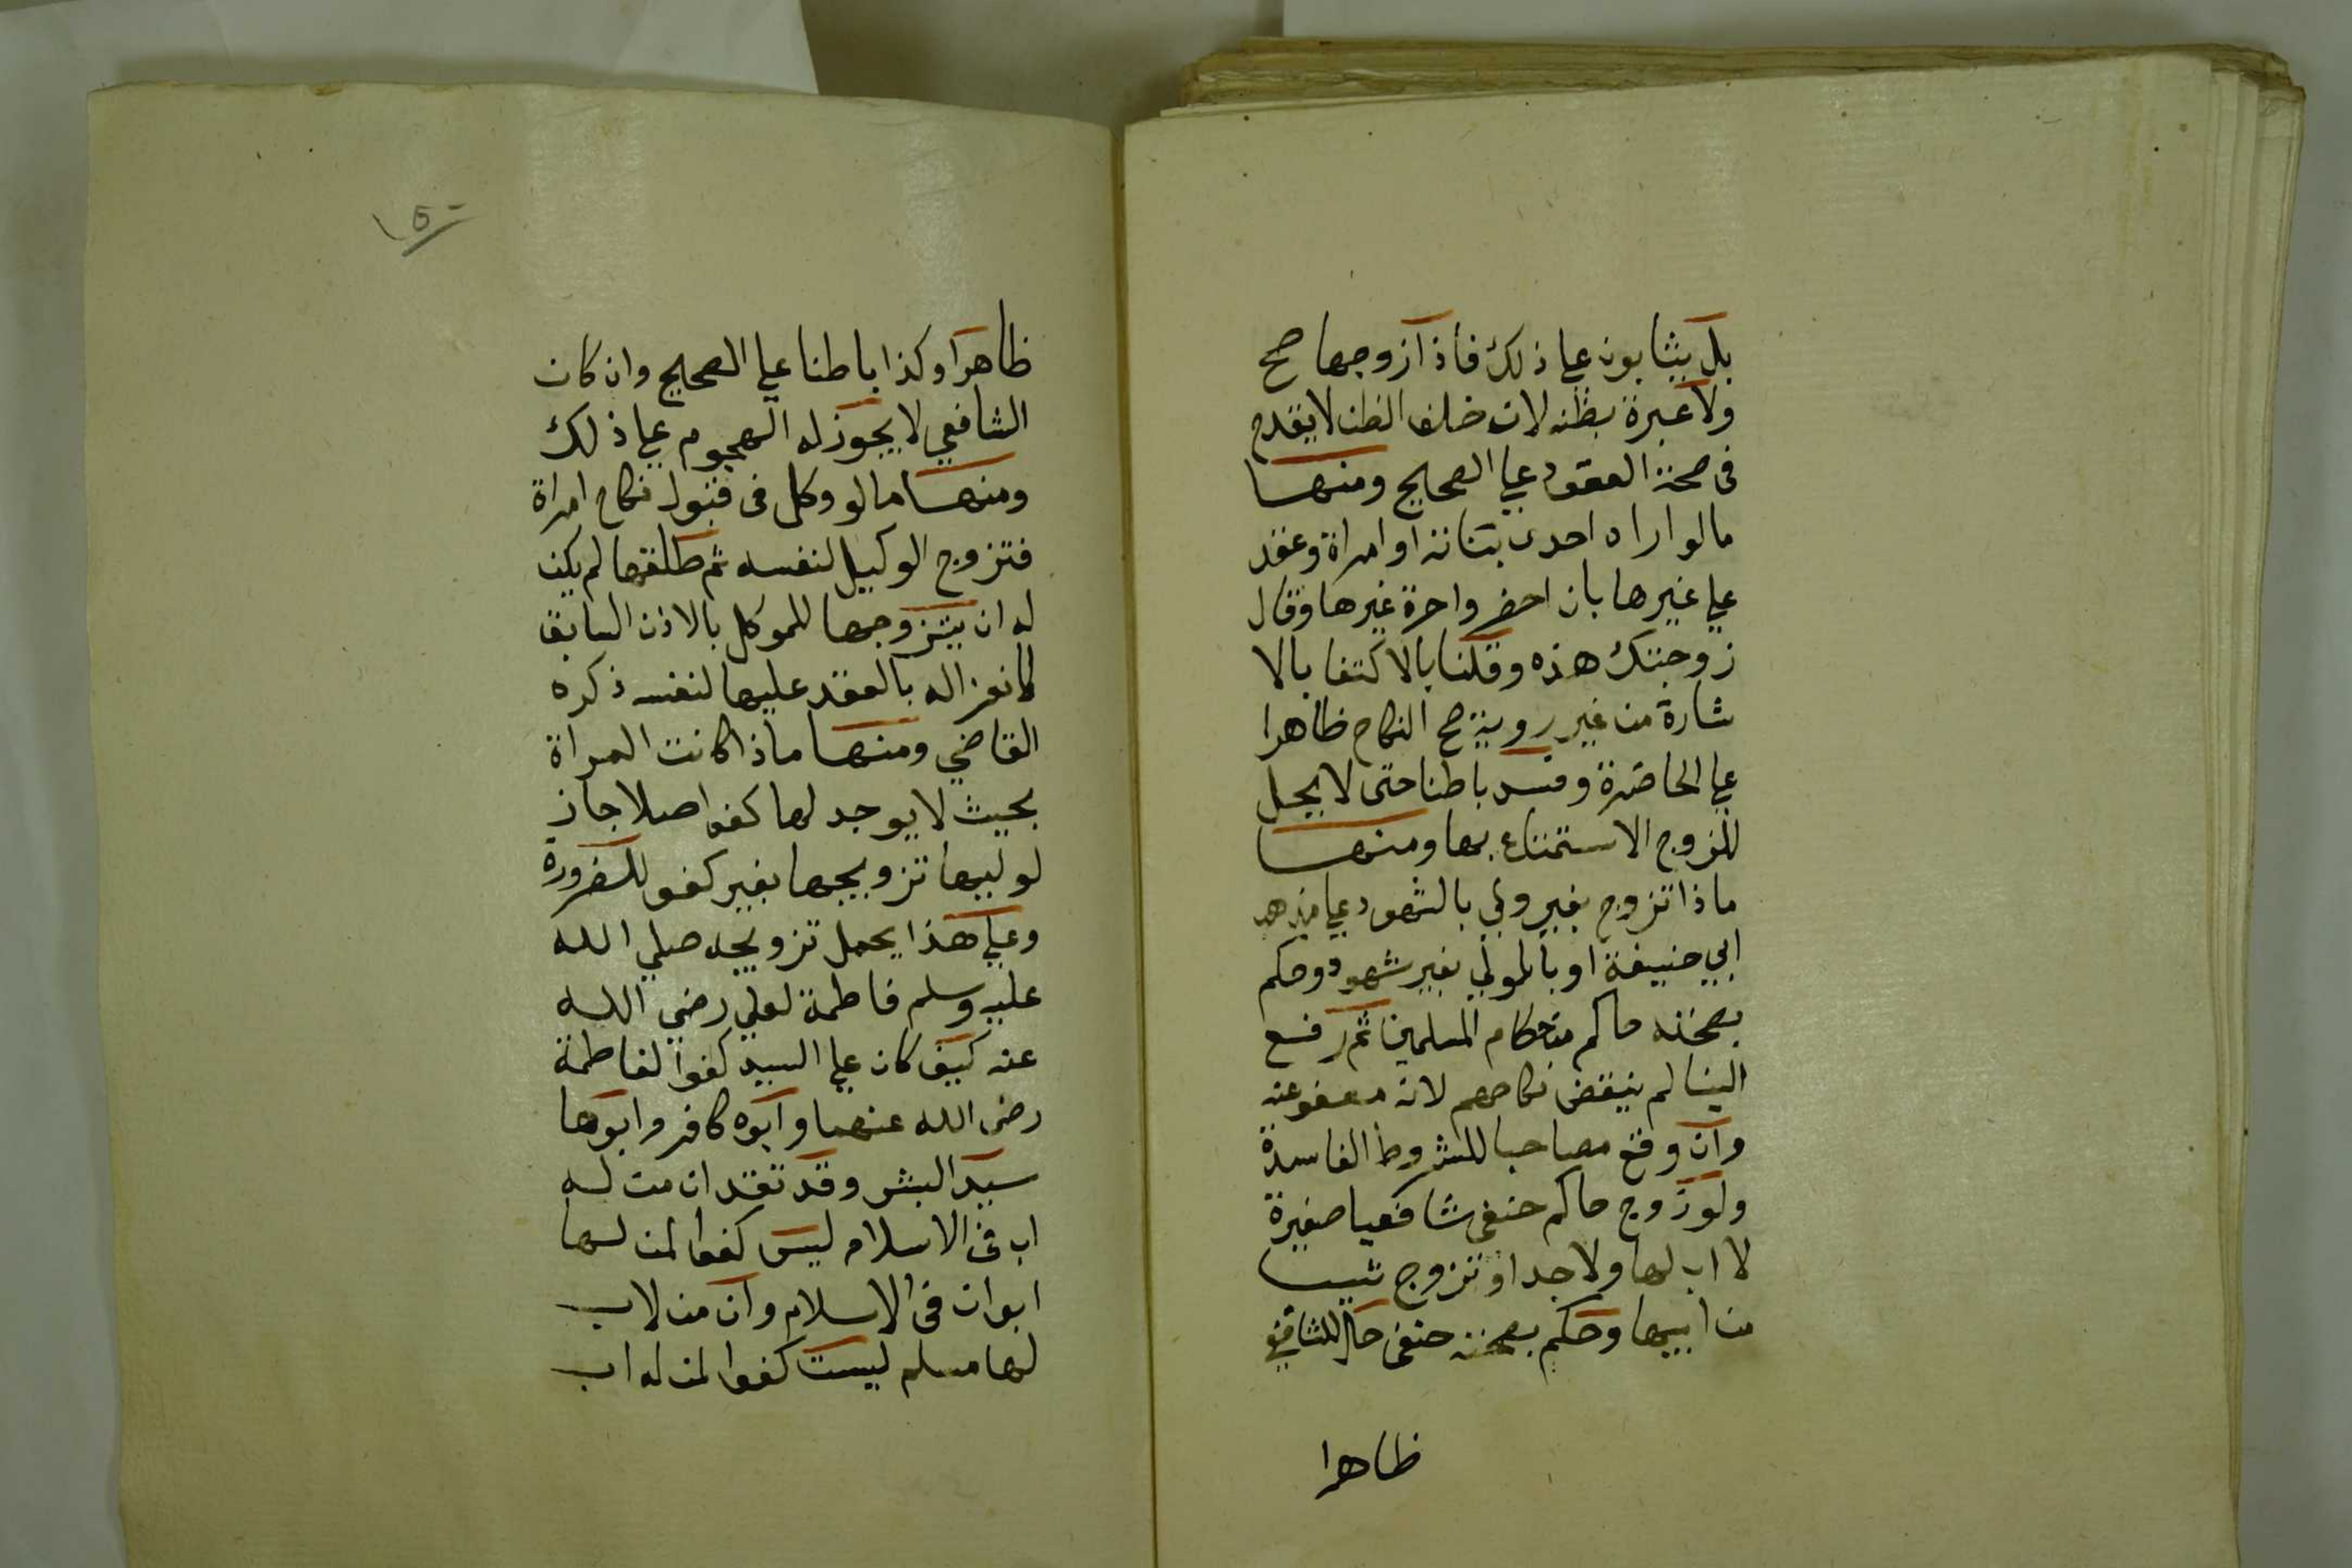 بل يثابون علي ذلك فأذا زوجها صح
ولا عبرة بظنه لان خلف الظن لا يقدح
فى صحة العقود علي الصحيح ومنها
ما لو اراه احدى بناته او امراة وعقد
علي غيرها بان احضر واحدة غيرها وقال
زوجتك هذه وقلنا بالاكتفا بالا
شارة من غير روية صح النكاح ظاهرا
علي الحاضرة وفسد باطنا حتى لا يحل
للزوج الاستمتاع بها ومنها
ماذا تزوج بغير ولي بالشهود علي مذهب
ابي حنيفة او بالولي بغير شهود وحكم
بصحته حاكم من حكام المسلمين ثم رفع
الينا لم ينقض نكاحهم لانه معفو عنه
وان وقع مصاحبا للشروط الفاسدة
ولو زوج حاكم حنفى شافعيا صغيرة
لا اب لها ولا جد او تزوج ثيبا
من ابيها وحكم بصحته حنفى حل للشافعي
ظاهرا
١٥٠
ظاهرا وكذا باطنا علي الصحيح وان كان
الشافعي لا يجوز له الهجوم علي ذلك
ومنها ما لو وكل فى قبول نكاح امراة
فتزوج الوكيل لنفسه ثم طلقها لم يكن
له ان يتزوجها للموكل بالاذن السابق
لانعزاله بالعقد عليها لنفسه ذكره
القاضي ومنها ماذا كانت المراة
بحيث لا يوجد لها كفوا اصلا جاز
لوليها تزويجها بغير كفو للضرورة
وعلي هذا يحمل تزويجه صلي الله
عليه وسلم فاطمة لعلي رضي الله
عنه كيف كان علي السيد كفوا لفاطمة
رضى الله عنهما وابوه كافر وابوها
سيد البشر وقد تقدم ان من له
اب فى الاسلام ليس كفوا لمن لها
ابوان فى الاسلام وان من لا اب
لها مسلم ليست كفوا لمن له اب